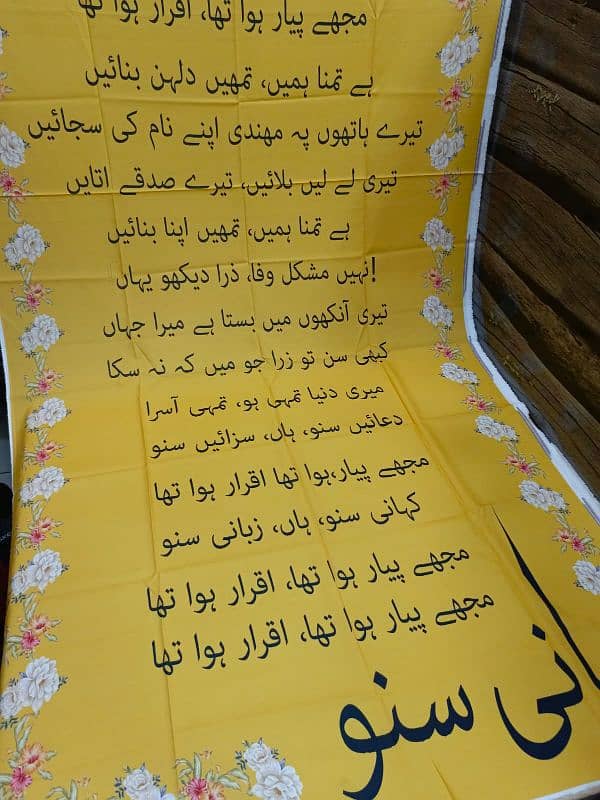 مجھے پیار ہوا تھا، اقرار ہوا تھا
ہے تمنا ہمیں، تمھیں دلہن بنائیں
تیرے ہاتھوں پہ مھندی اپنے نام کی سجائیں
تیری لے لیں بلائیں، تیرے صدقے اتایں
ہے تمنا ہمیں، تمھیں اپنا بنائیں
نہیں مشکل وفا، ذرا دیکھو یہاں!
تیری آنکھوں میں بستا ہے میرا جہاں
کبھی سن تو زرا جو میں کہ نہ سکا
میری دنیا تمہی ہو، تمہی آسرا
دعائیں سنو، ہاں، سزائیں سنو
مجھے پیار،ہوا تھا اقرار ہوا تھا
کہانی سنو، ہاں، زبانی سنو
مجھے پیار ہوا تھا، اقرار ہوا تھا
مجھے پیار ہوا تھا، اقرار ہوا تھا
انی سنو